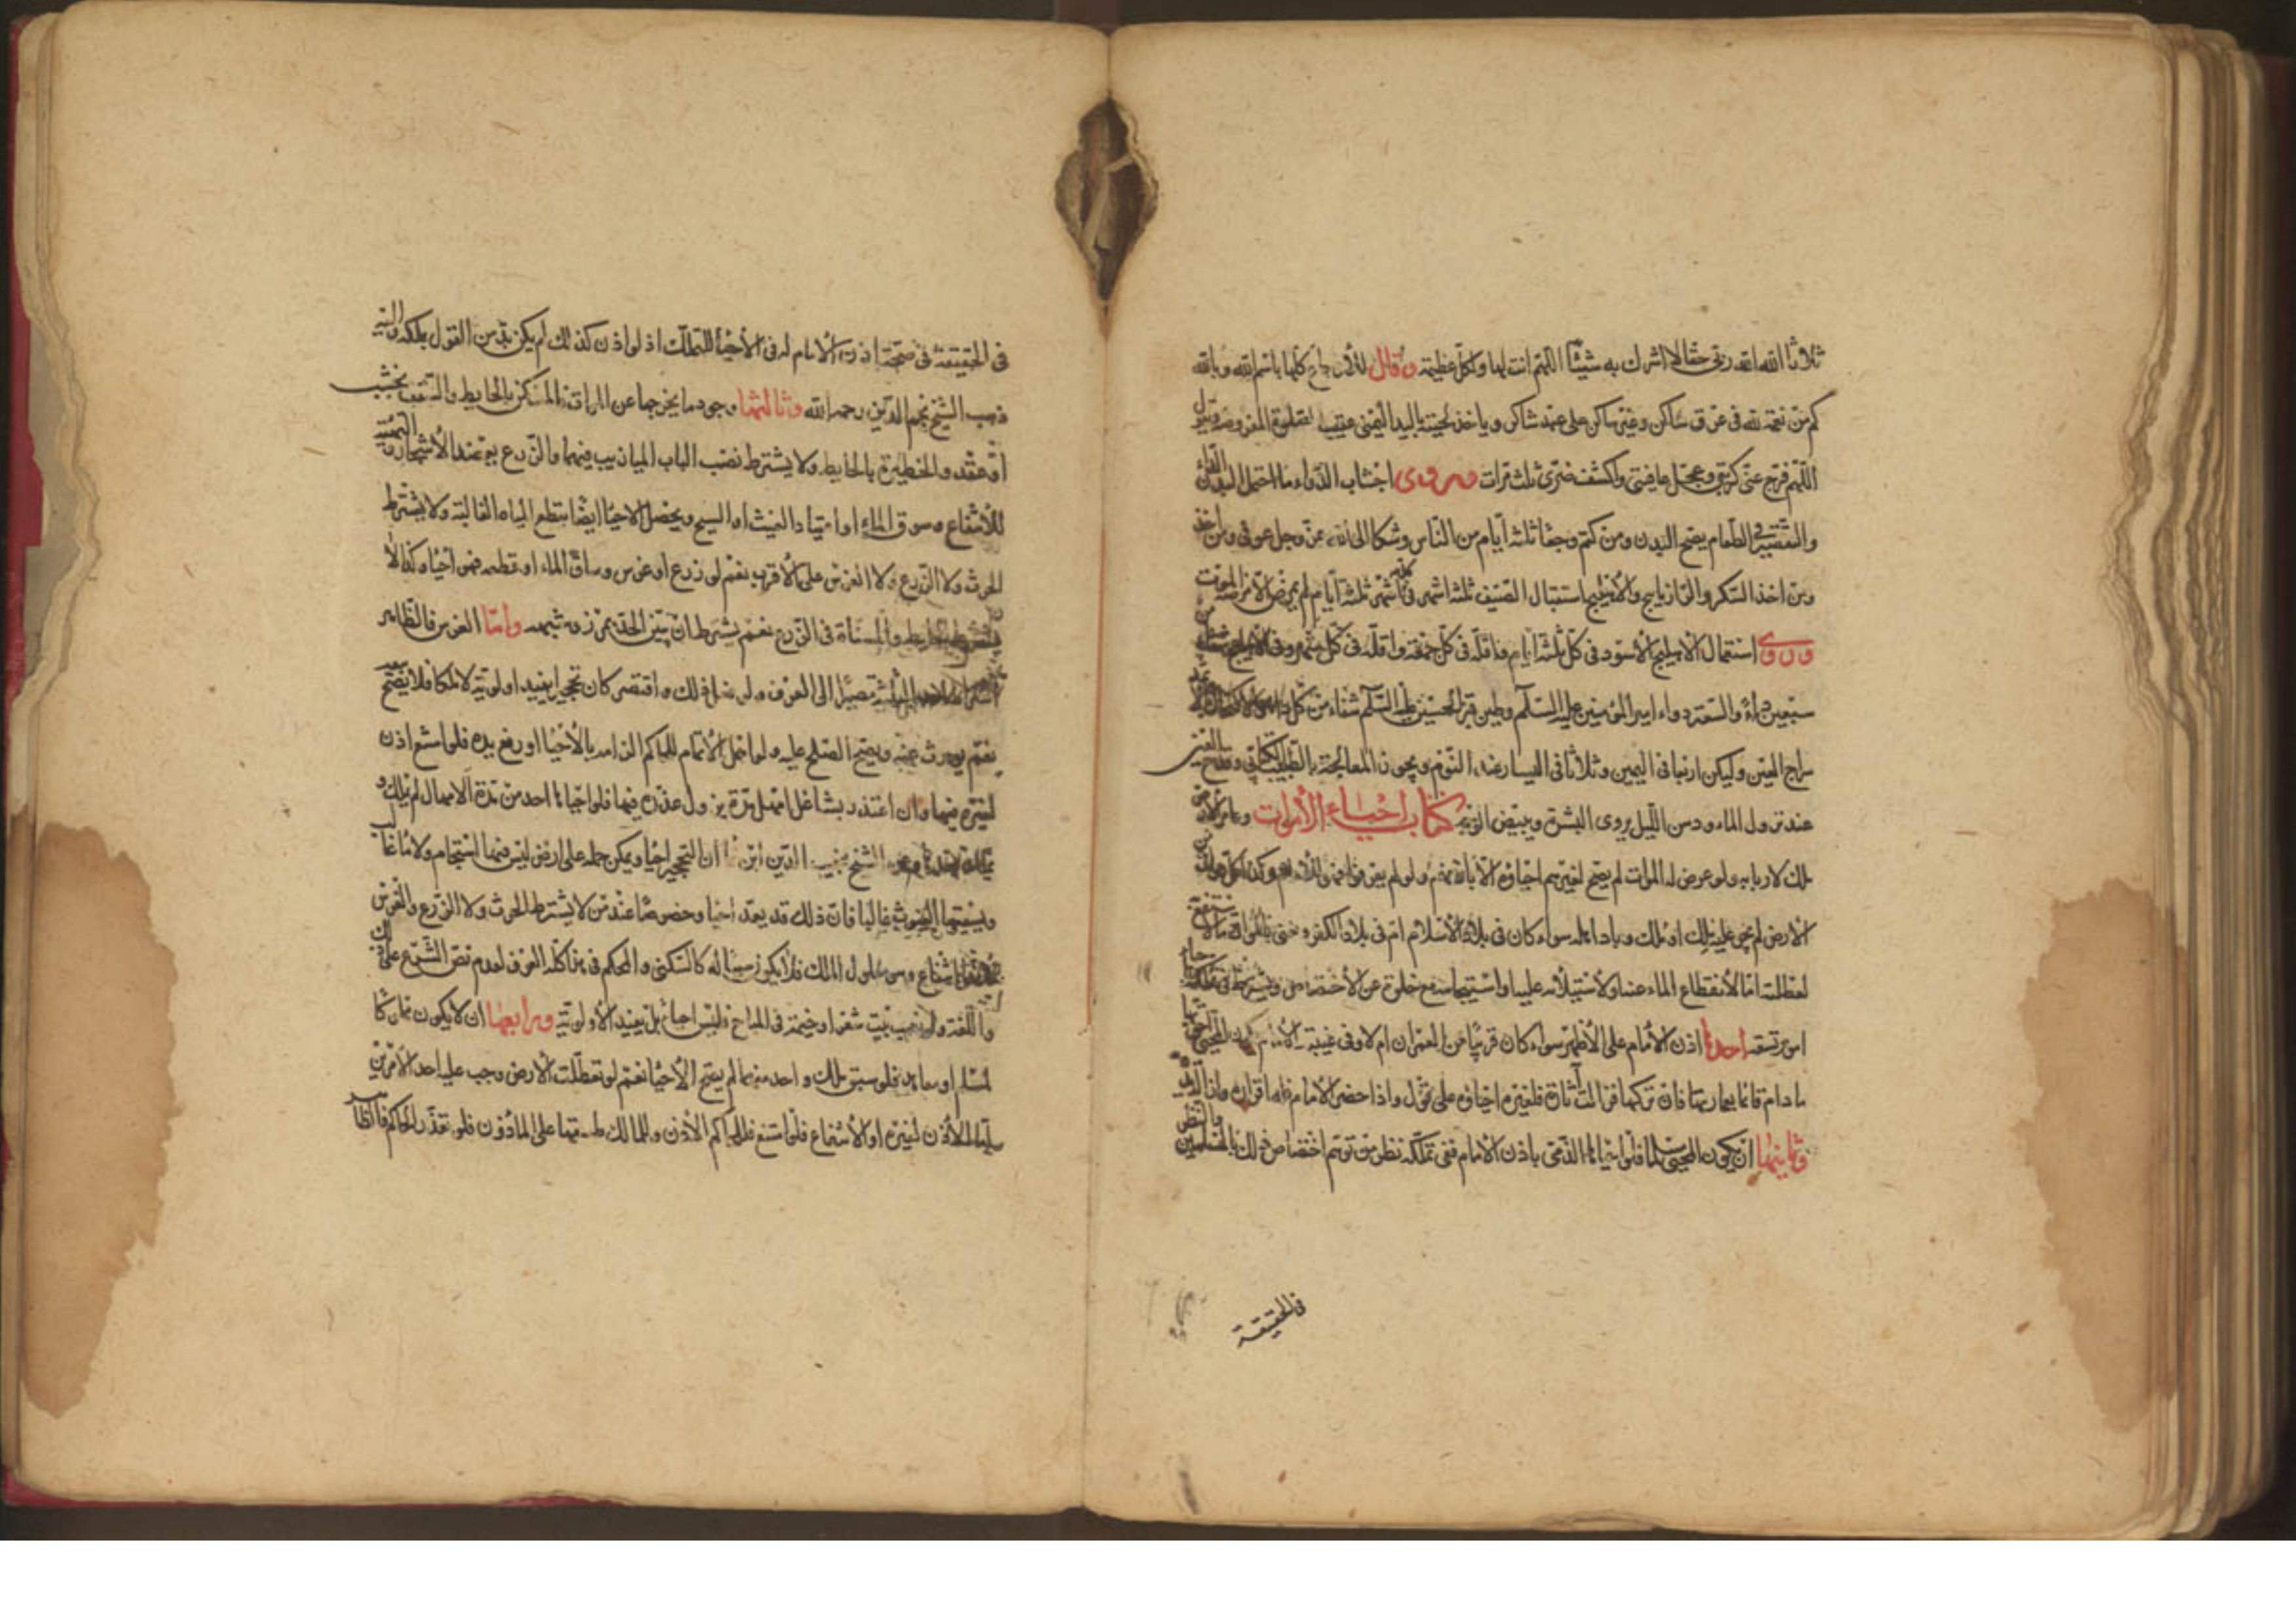 ثلاثا الله الله ربي حقا لا اشرك به شيئا اللهم انت لها ولكل عظيمة ويقال للأوجاع كلها باسم الله وبالله
كم من نعمة لله في عرق ساكن وغير ساكن على عبد شاكر وياخذ لحيته باليد اليمنى عقيب الصلوة المفروضة ويقول
اللهم فرج عني كربتي وعجل عافيتي واكشف ضري ثلث مرات وروى اجتناب الدواء ما احتمل البدن الداء
والتقصير في الطعام يصح البدن ومن كتم وجعا ثلثة ايام من الناس وشكا الى الله عز وجل عوفي ومن اخذ
ومن اخذ السكر والرازيانج والاهليلج استقبال الصيف ثلثة اشهر في كل شهر ثلثة ايام لم يمرض الا مرض الموت
وروى استعمال الاهليلج الاسود في كل ثلثة ايام فاقله في كل جمعة واقله في كل شهر وفي الاهليلج شفاء من
سبعين داء والسعتر دواء امير المؤمنين عليه السلم وطين قبر الحسين عليه السلم شفاء من كل داء والاكتحال
سراج العين وليكن اربعا في اليمين وثلاثا في اليسار عند النوم ويجوز المعالجة بالطبيب الكتابي وقدح العين
عند نزول الماء ودهن الليل يروى البشرة ويبيض الوجه كتاب احياء الأموات وعامر الارض
ملك لاربابه ولو عرض له الموات لم يصح لغيرهم احياؤه الا باذنهم ولو لم يعرفوا فهو للامام وكذا كل موات من
الارض لم يجر عليه ملك او ملك وباد اهله سواء كان في بلاد الاسلام ام في بلاد الكفر ونعني بالموات ما لا ينتفع به
لعطلته اما لانقطاع الماء عنه او لاستيلائه عليه او استيجامه مع خلوه عن الاختصاص ويشترط في تملكه باحيائه
امور تسعة احدها اذن الامام على الاظهر سواء كان قريبا من العمران ام لا وفي غيبة الامام يكون المحيي احق بها
ما دام قائما بعمارتها فان تركها فزالت آثاره فلغيره احياؤه على قول واذا حضر الامام فله اقراره وازالة يده
وثانيها ان يكون المحيي مسلما فلو احياها الذمي باذن الامام ففي تملكه نظر من توهم اختصاص ذلك بالمسلمين والنظر
في الحقيقة
في الحقيقة في صحة اذن الامام له في الأحياء للتملك اذ لو اذن كذلك لم يكن بد من القول بملكه واليه
ذهب الشيخ نجم الدين رحمه الله وثالثها وجود ما يخرجها عن الموات فالمسكن بالحايط والسقف بخشب
او عقد والحظيرة بالحايط ولا يشترط نصب الباب الميازيب فيهما والزرع بعضد الأشجار والتهيئة
للأنتفاع وسوق الماء او اعتياد الغيث او السيح ويحصل الاحياء ايضا بقطع المياه الغالبة ولا يشترط
الحرث ولا الزرع ولا الغرس على الأقرب نعم لو زرع او غرس وساق الماء او قطعه فهو احياء وكذا لا
يشترط الحايط والمسناة في الزرع نعم يشترط ان يبين الحد بمرز وشبهه واما الغرس فالظاهر
اشتراط احد الثلثة مصيرا الى العرف ولو فعل ذلك واقتصر كان تحجيرا يفيد اولوية لا ملكا فلا يصح بيعه
نعم يورث عنه ويصح الصلح عليه ولو اهمل الاتمام فللحاكم الزامه بالأحياء او رفع يده فلو امتنع اذن
لغيره فيها وان اعتذر بشاغل امهل مدة يزول عذره فيها فلو احياها احد من مدة الامهال لم يملك و
يملك بعدها وعن الشيخ نجيب الدين ابن نما ان التحجير احياء ويمكن حمله على ارض ليس فيها استيجام ولا ماء غالب
ويسقيها الغيوث غالبا فان ذلك قد يعد احياء وخصوصا عند من لا يشترط الحرث ولا الزرع والغرس
وهو معلول الملك فلا يكون سببا له كالسكنى والمحكم في هذا كله العرف لعدم نص الشرع على ذلك
واللغة ولو نصب بيت شعر او خيمة في المباح فليس احياء بل يفيد الأولوية ورابعها ان لا يكون مملوكا
لمسلم او معاهد فلو سبق ملك واحد منهما لم يصح الأحياء نعم لو تعطلت الارض وجب عليه احد الأمرين
اما الاذن لغيره او الأنتفاع فلو امتنع فللحاكم الأذن وللمالك طسقها على المأذون فلو تعذر الحاكم فالظاهر